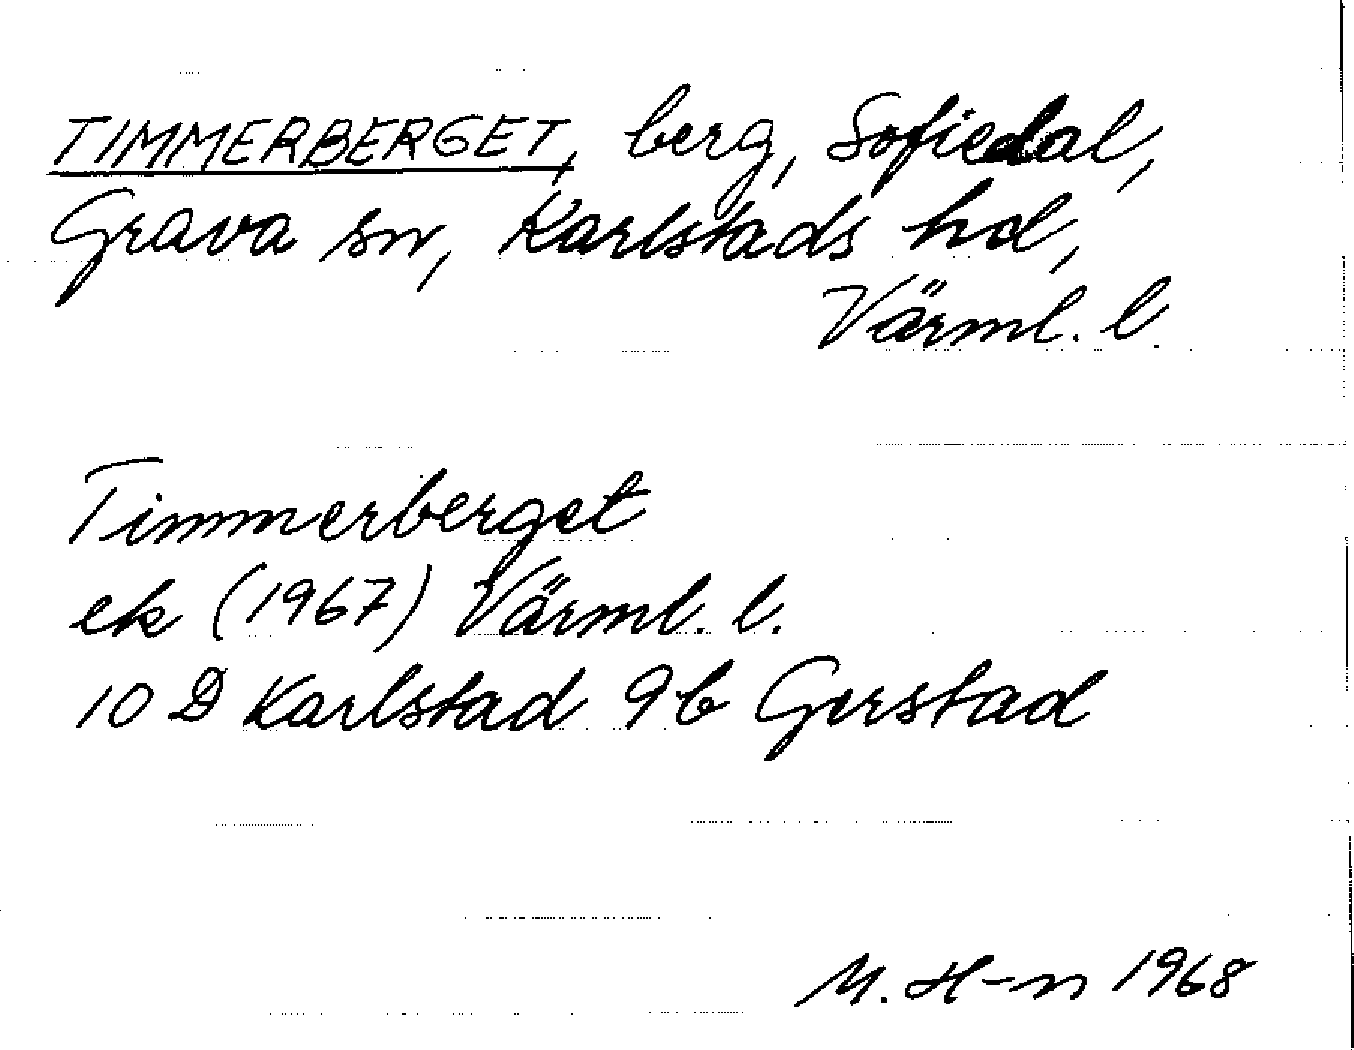 TIMMERBERGET, berg, Sofiedal,
Grava sn, Karlstads hd,
Värml. l.
Timmerberget
ek (1967) Värml. l.
10 D Karlstad 9b Gerstad
M. H-n 1968